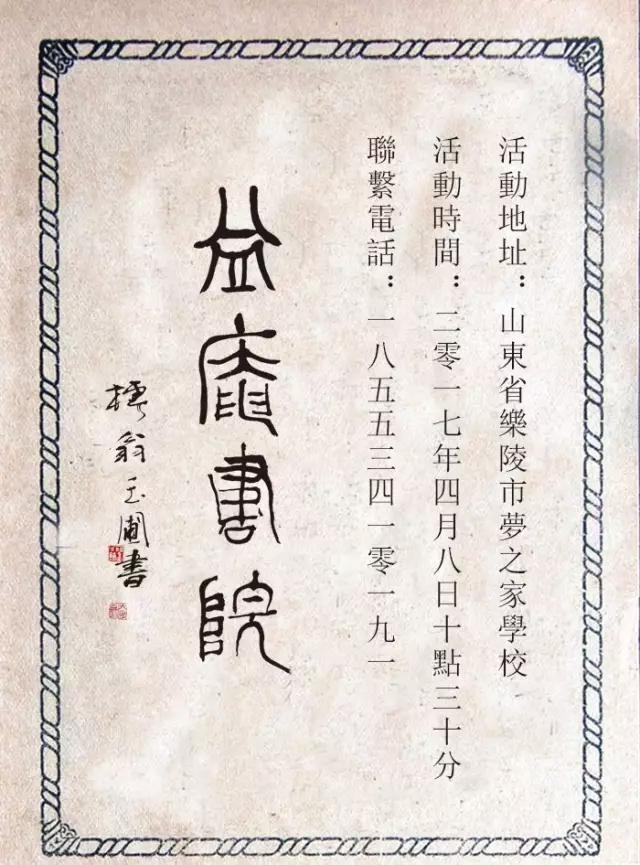 活動地址：山東省樂陵市夢之家學校
活動時間：二零一七年四月八日十點三十分
聯繫電話：一八五五三四一零一九一
益庵書院
翁玉圃書